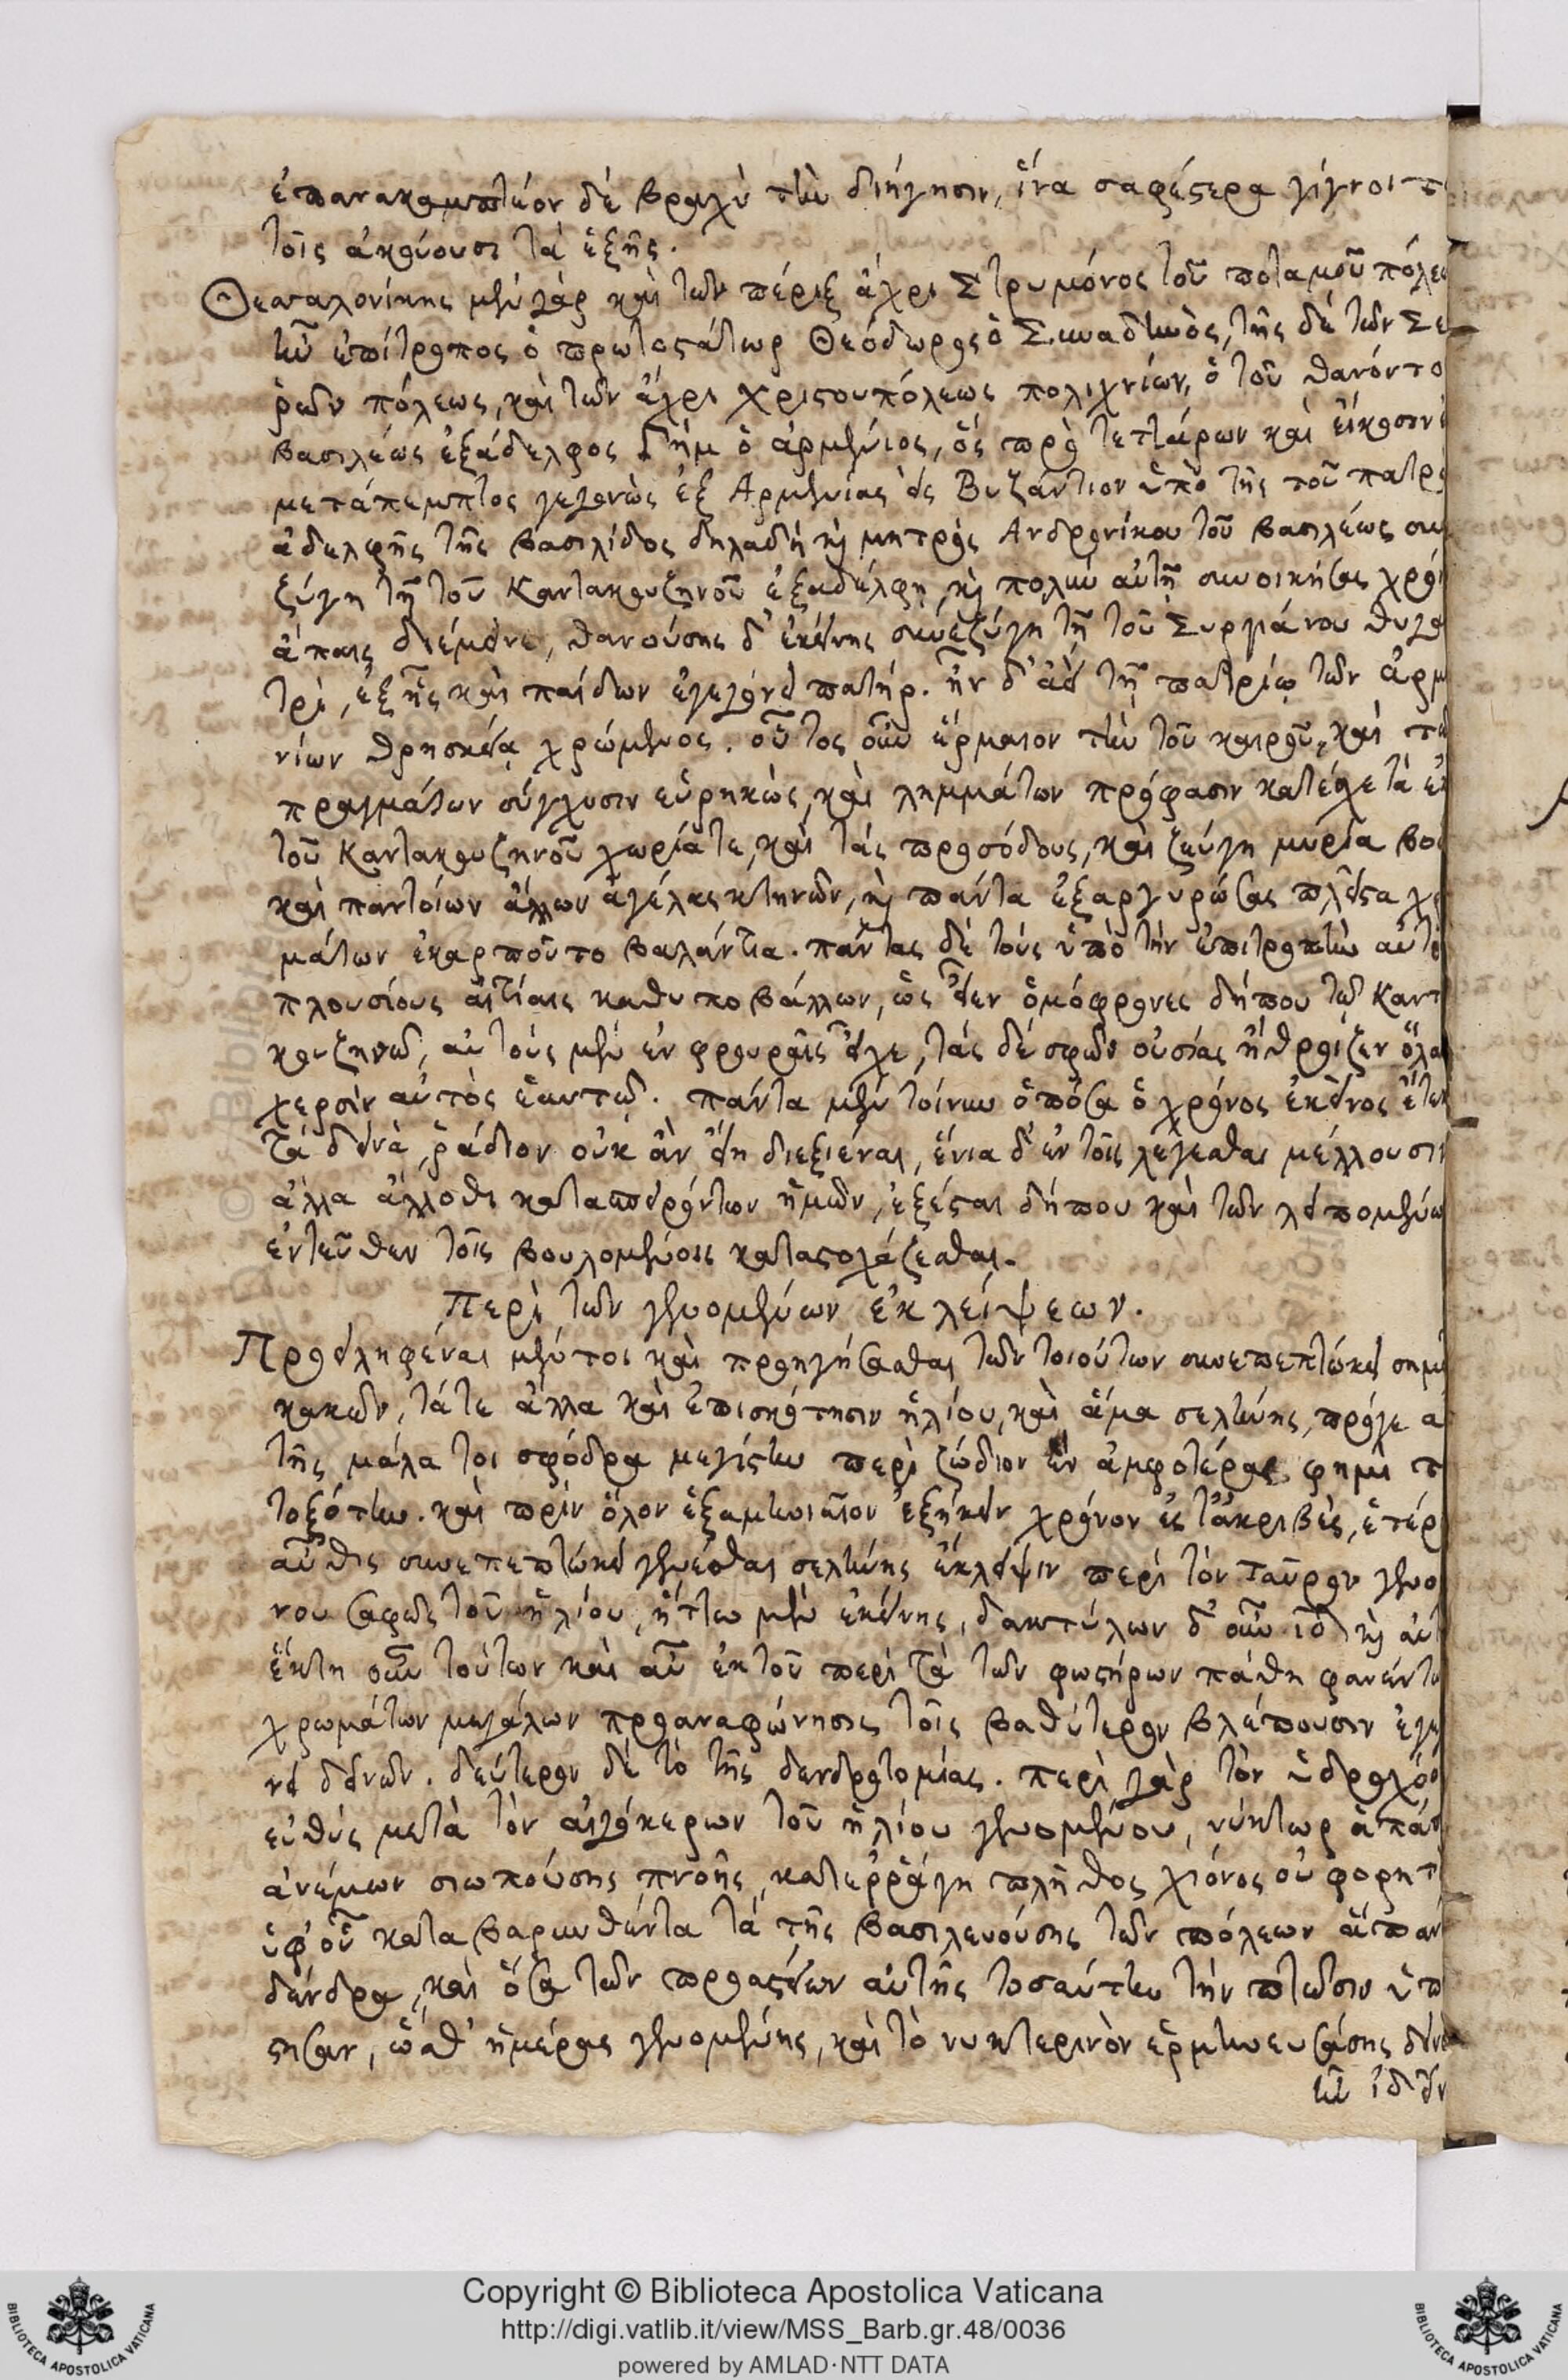 ἐπανακαμπτέον δὲ βραχὺ τὴν διήγησιν, ἵνα σαφέστερα γίγνοιτο
τοῖς ἀκούουσι τὰ ἑξῆς.
Θεσσαλονίκης μὲν γὰρ καὶ τῶν πέριξ ἄχρι Στρυμόνος τοῦ ποταμοῦ πόλεω
ἦν ἐπίτροπος ὁ πρωτοστάτωρ Θεόδωρος ὁ Συναδηνὸς, τῆς δὲ τῶν Σε
ῤῥῶν πόλεως, καὶ τῶν ἄχρι χριστουπόλεως πολιχνίων, ὁ τοῦ θανόντο
βασιλέως ἐξάδελφος Γῂμ ὁ ἀρμένιος, ὃς πρὸ τεττάρων καὶ εἴκοσιν ἐ
μετάπεμπτος γεγονὼς ἐξ Ἀρμενίας ἐς Βυζάντιον ὑπὸ τῆς τοῦ πατρὸ
ἀδελφῆς τῆς βασιλίδος δηλαδὴ καὶ μητρὸς Ανδρονίκου τοῦ βασιλέως συν
ζύγη τῇ τοῦ Καντακουζηνοῦ ἐξαδέλφῃ, καὶ πολὺν αὐτῇ συνοικήσας χρόν
ἄπαις διέμεινε, θανούσης δ' ἐκείνης συνεζύγη τῇ τοῦ Συργιάνου θυγα
τρὶ, ἐξ ἧς καὶ παίδων ἐγεγόνει πατήρ. ἦν δ' ἀεὶ τῇ πατρίῳ τῶν ἀρμ
νίων θρησκείᾳ χρώμενος. οὗτος οὖν ἕρμαιον τὴν τοῦ καιροῦ, καὶ τῶ
πραγμάτων σύγχυσιν εὑρηκὼς, καὶ λημμάτων πρόφασιν κατέσχε τὰ ἐκ
τοῦ Καντακουζηνοῦ χωρία τε, καὶ τὰς προσόδους, καὶ ζεύγη μυρία βο
καὶ παντοίων ἄλλων ἀγέλας κτηνῶν, καὶ πάντα ἐξαργυρώσας πλεῖστα χρ
μάτων ἐκαρποῦτο βαλάντια. πάντας δὲ τοὺς ὑπὸ τὴν ἐπιτροπὴν αὐτο
πλουσίους αἰτίαις καθυποβάλλων, ὡς εἶεν ὁμόφρονες δήπου τῷ Καντ
κουζηνῷ, αὐτοὺς μὲν ἐν φρουραῖς εἶχε, τὰς δὲ σφῶν οὐσίας ἤθροιζεν ὅλαι
χερσὶν αὐτὸς ἑαυτῷ. πάντα μὲν τοίνυν ὁπόσα ὁ χρόνος ἐκεῖνος ἔτεκ
τὰ δεινὰ, ῥάδιον οὐκ ἂν εἴη διεξιέναι, ἔνια δ' ἐν τοῖς λέγεσθαι μέλλουσιν
ἄλλα ἄλλοθι κατασπειρόντων ἡμῶν, ἐξέσται δήπου καὶ τῶν λειπομένω
ἐντεῦθεν τοῖς βουλομένοις καταστοχάζεσθαι.
Περὶ τῶν γενομένων ἐκλείψεων.
Προειληφέναι μέντοι καὶ προηγήσασθαι τῶν τοιούτων συνεπεπτώκει σημ
κακῶν, τά τε ἄλλα καὶ ἐπισκότησιν ἡλίου, καὶ ἅμα σελήνης, πρό γε α
τῆς μάλα τοι σφόδρα μεγίστην περὶ ζώδιον ἓν ἀμφοτέρας φημὶ τ
τοξότην. καὶ πρὶν ὅλον ἑξαμηνιαῖον ἐξήκειν χρόνον ἐς τἀκριβὲς, ἑτέρα
αὖθις συνεπεπτώκει γενέσθαι σελήνης ἔκλειψιν περὶ τὸν Ταῦρον γενο
νου σαφῶς τοῦ ἡλίου, ἥττω μὲν ἐκείνης, δακτύλων δ' οὖν ιδ καὶ αὐτ
ἕκτη οὖν τούτων καὶ αὖ ἐκ τοῦ περὶ τὰ τῶν φωστήρων πάθη φανέντω
χρωμάτων μεγάλων προαναφώνησις τοῖς βαθύτερον βλέπουσιν ἐγε
νει δεινῶν. δεύτερον δὲ τὸ τῆς δενδροτομίας. περὶ γὰρ τὸν ὑδροχόο
εὐθὺς μετὰ τὸν αἰγόκερων τοῦ ἡλίου γενομένου, νύκτωρ ἁπάσ
ἀνέμων σιωπούσης πνοῆς, κατεῤῥάγη πλῆθος χιόνος οὐ φορητὸ
ὑφ' οὗ καταβαρυνθέντα τὰ τῆς βασιλευούσης τῶν πόλεων ἅπαν
δένδρα, καὶ ὅσα τῶν προαστείων αὐτῆς τοσαύτην τὴν πτῶσιν ὑπ
στησαν, ὥσθ' ἡμέρας γενομένης, καὶ τὸ νυκτερινὸν ἑρμηνευσάσης δεινὸ
ἦν ἰδεῖν
Copyright © Biblioteca Apostolica Vaticana
http://digi.vatlib.it/view/MSS_Barb.gr.48/0036
powered by AMLAD·NTT DATA
BIBLIOTECA APOSTOLICA VATICANA
BIBLIOTECA APOSTOLICA VATICANA